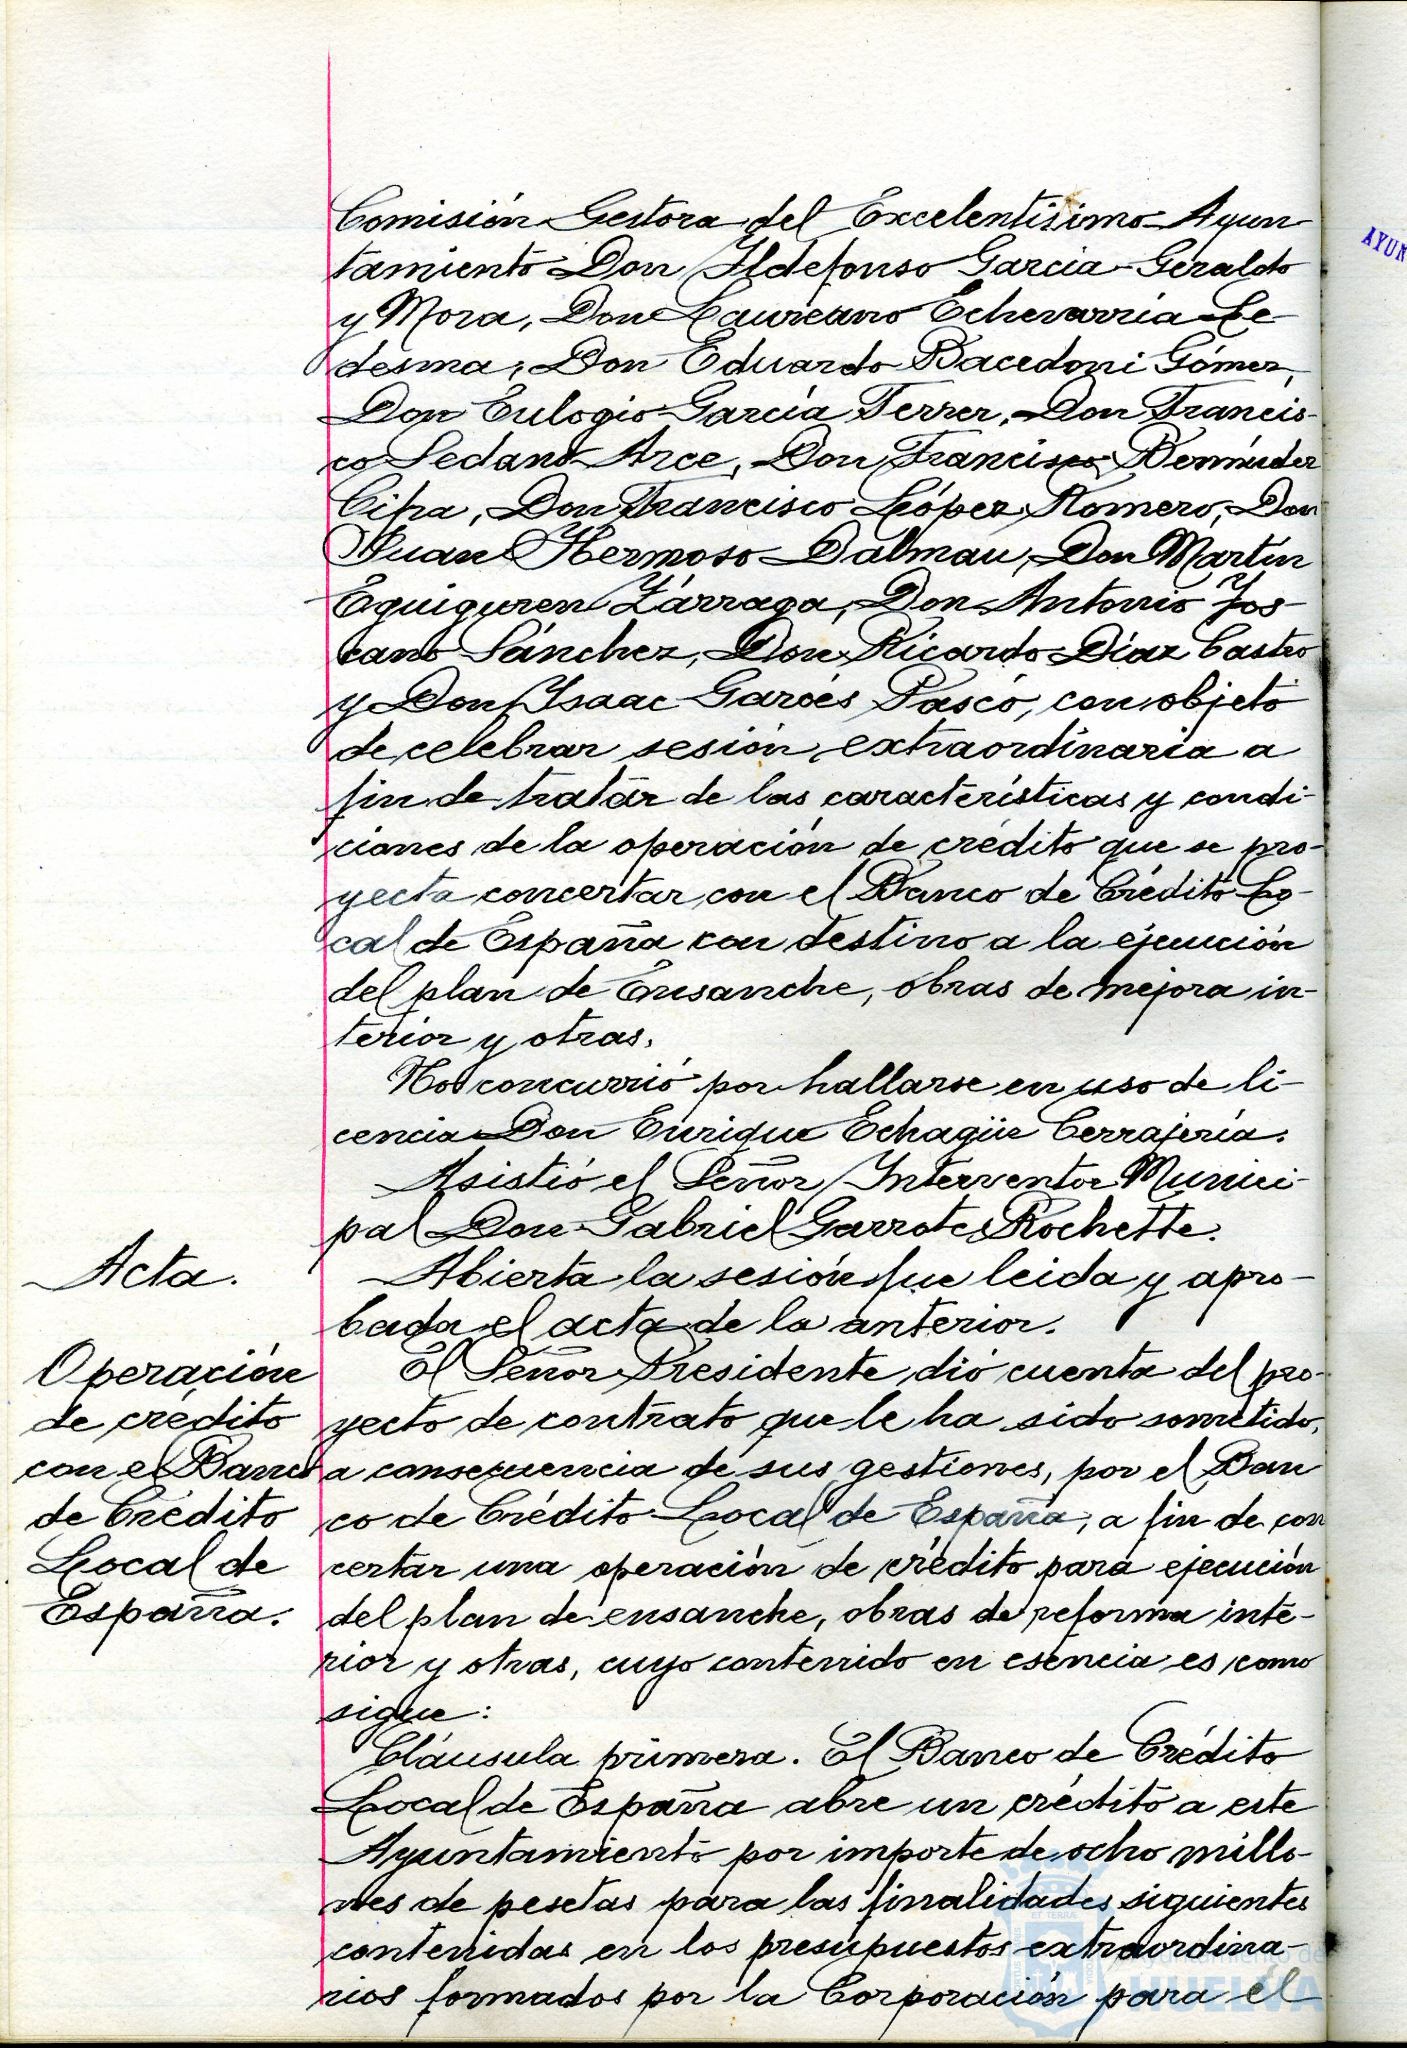 Comisión Gestora del Excelentísimo Ayun
tamiento Don Ildefonso García-Geraldo
y Mora, Don Laureano Echevarría Le-
desma, Don Eduardo Bacedoni Gómez,
Don Eulogio García Ferrer, Don Francis-
co Sedano Arce, Don Francisco Bermúdez
Cipa, Don Francisco López Romero, Don
Juan Hermoso Dalmau, Don Martín
Eguiguren Yárraga, Don Antonio Jos-
cano Sánchez, Don Ricardo Díaz Castro
y Don Isaac Garcés Pascó, con objeto
de celebrar sesión extraordinaria a
fin de tratar de las características y condi-
ciones de la operación de crédito que se pro-
yecta concertar con el Banco de Crédito Lo-
cal de España con destino a la ejecución
del plan de Ensanche, obras de mejora in-
terior y otras.
No concurrió por hallarse en uso de li-
cencia Don Enrique Echagüe Cerrajería.
Asistió el Señor Interventor Munici-
pal Don Gabriel Garrote Rochette.
Acta.
Abierta la sesión fue leida y apro-
bada el acta de la anterior.
Operación
de crédito
con el Banco
de Crédito
Local de
España.
El Señor Presidente dió cuenta del pro-
yecto de contrato que le ha sido sometido,
a consecuencia de sus gestiones, por el Ban
co de Crédito Local de España, a fin de con
certar una operación de crédito para ejecución
del plan de ensanche, obras de reforma inte-
rior y otras, cuyo contenido en esencia es como
sigue:
Cláusula primera. El Banco de Crédito
Local de España abre un crédito a este
Ayuntamiento por importe de ocho millo-
nes de pesetas para las finalidades siguientes
contenidas en los presupuestos extraordina-
rios formados por la Corporación para el
Ayuntamiento de
HUELVA
AYUN